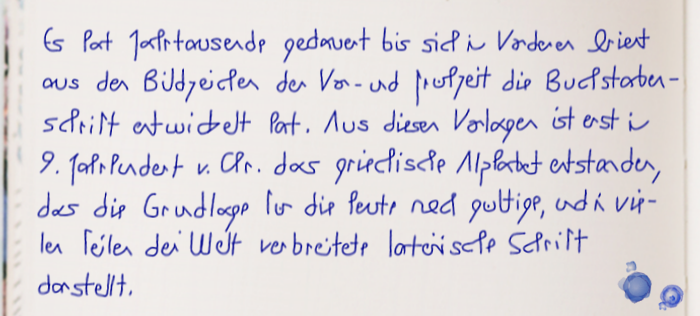 Es hat Jahrtausende gedauert bis sich in Vorderen Orient
aus den Bildzeichen der Vor- und Frühzeit die Buchstaben-
schrift entwickelt hat. Aus diesen Vorlagen ist erst in
9. Jahrhundert v. Chr. das griechische Alphabet entstanden,
das die Grundlage für die heute noch gültige, und in vie-
len Teilen der Welt verbreitete lateinische Schrift
darstellt.